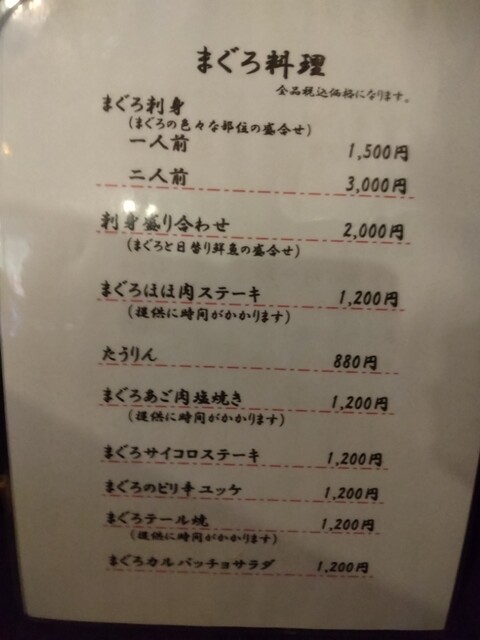 まぐろ料理
全品税込価格になります。
まぐろ刺身
(まぐろの色々な部位の盛合せ)
一人前 1,500円
二人前 3,000円
刺身盛り合わせ 2,000円
(まぐろと日替り鮮魚の盛合せ)
まぐろほほ肉ステーキ 1,200円
(提供に時間がかかります)
たうりん 880円
まぐろあご肉塩焼き 1,200円
(提供に時間がかかります)
まぐろサイコロステーキ 1,200円
まぐろのピリ辛ユッケ 1,200円
まぐろテール焼 1,200円
(提供に時間がかかります)
まぐろカルパッチョサラダ 1,200円